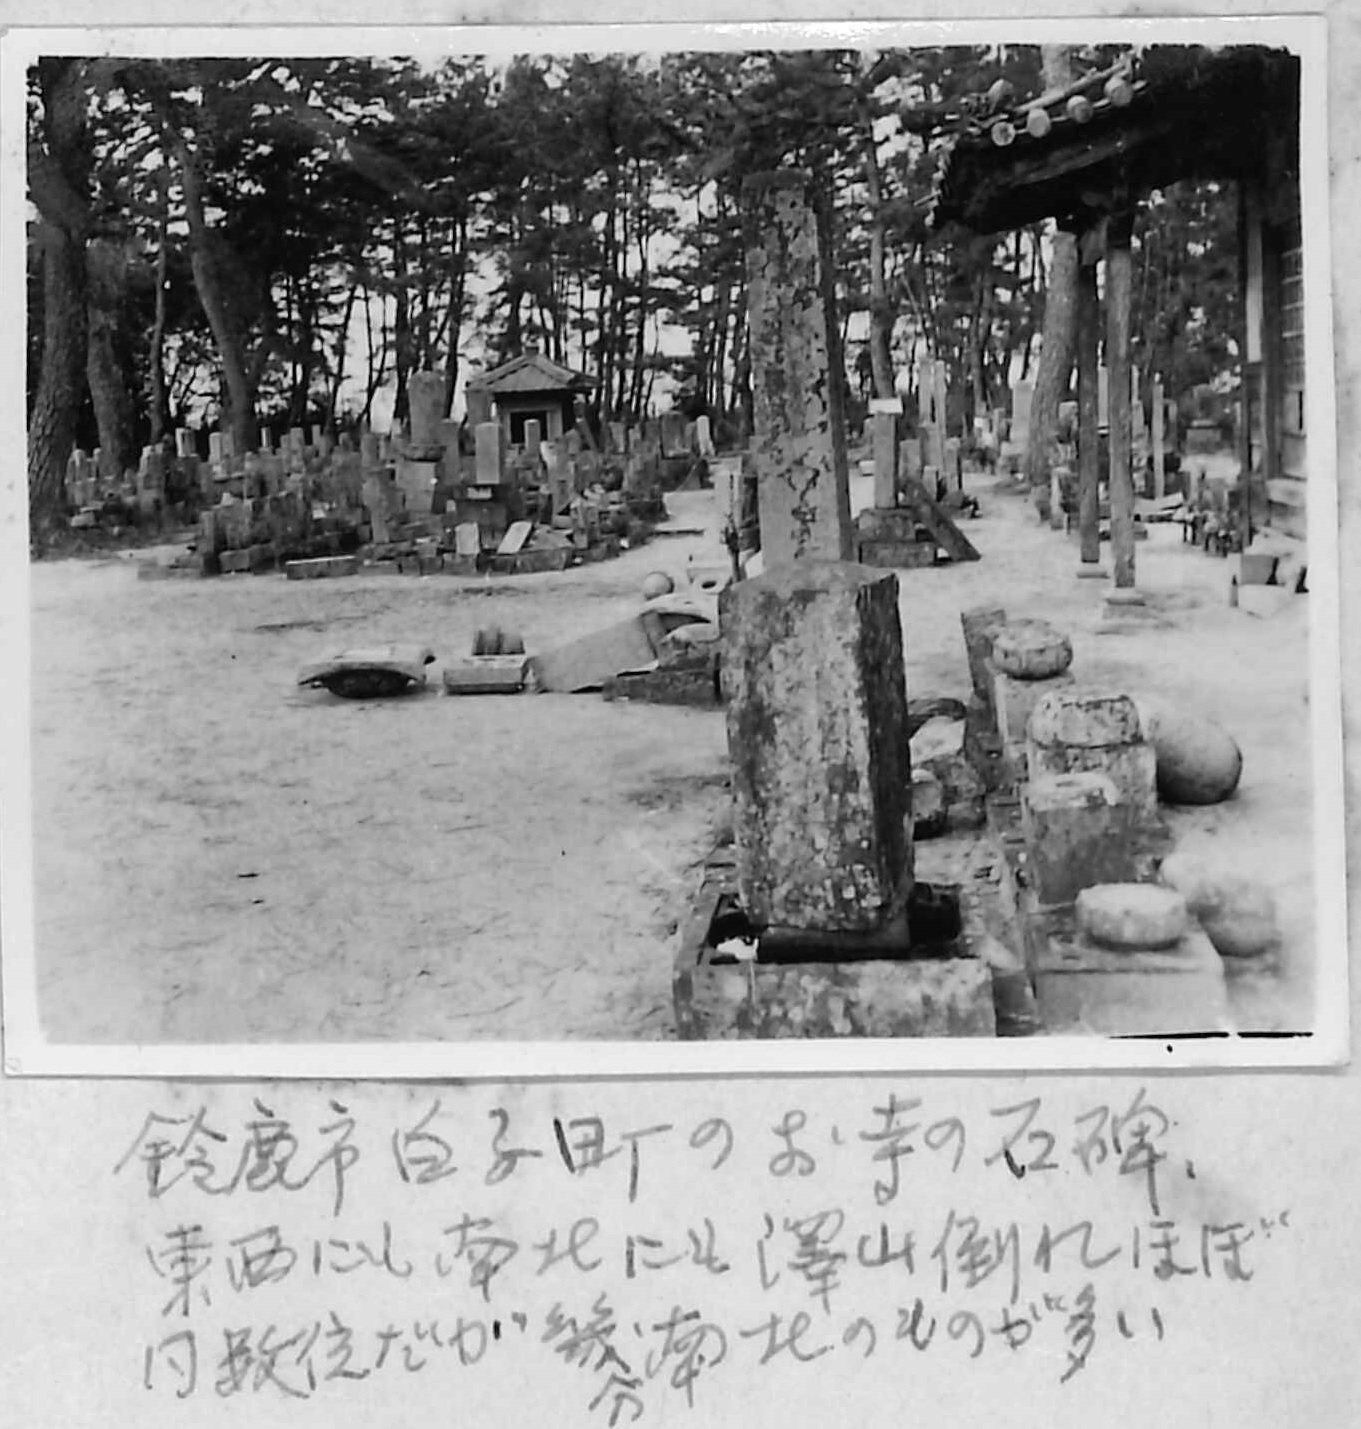 鈴鹿市白子町のお寺の石碑、
東西にも南北にも澤山倒れほぼ
同数位だが幾分南北のものが多い